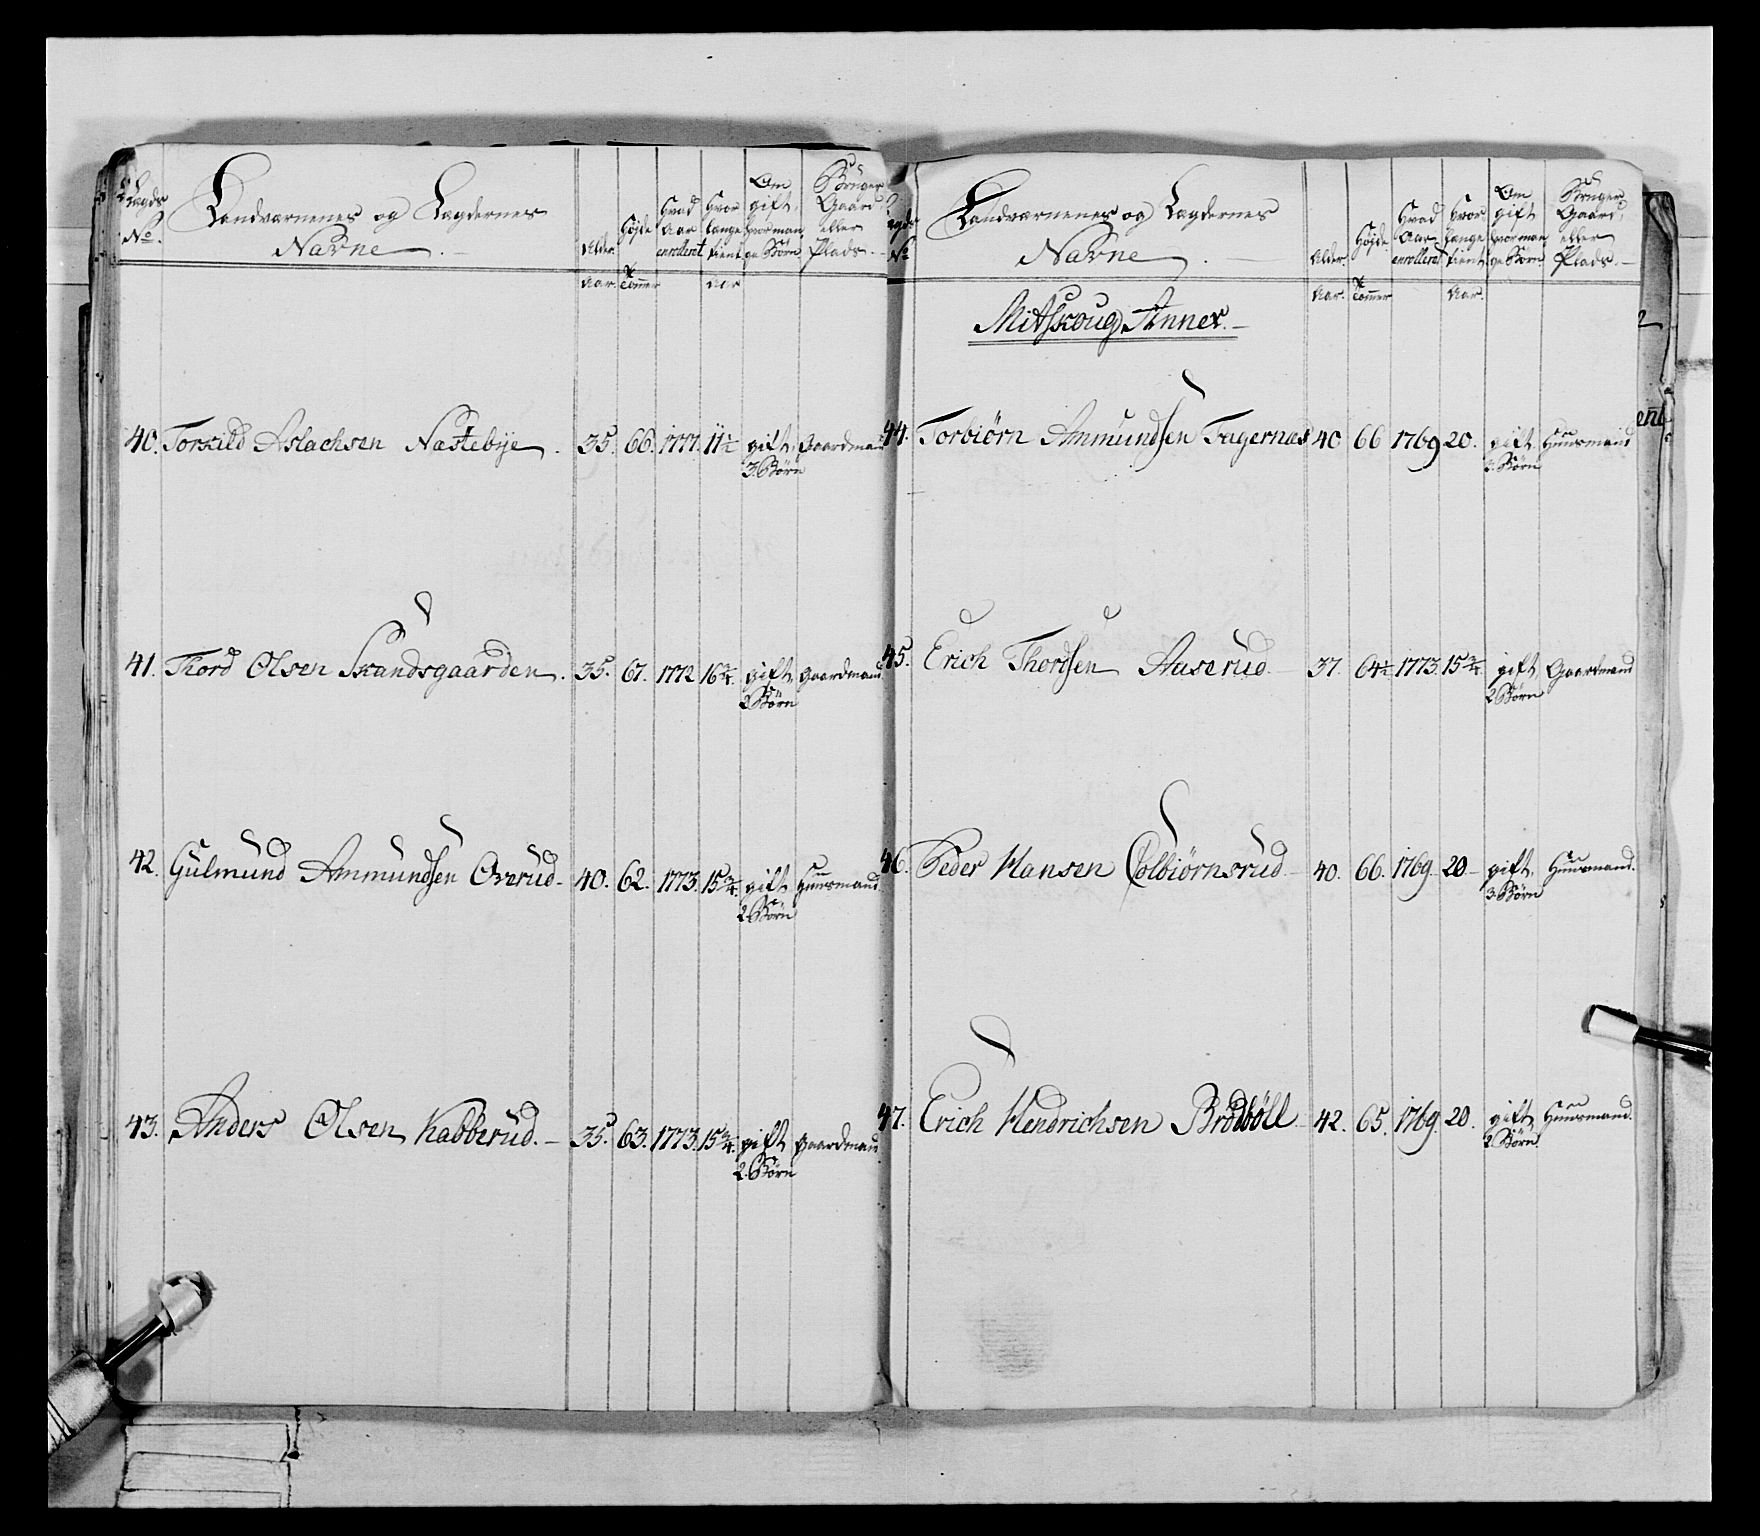 Lægds No. Landværnenes og Lægdernes Navne. Alder. Højde Hvad Aar enrolleret Hvor længe tient Om gift, hvor mange Børn Bruger Gaard eller Plads.
Aar. Tommer Aar
40. Torkild Aslachsen Nastebye. 35. 66. 1777. 11½ gift, Gaardmand
3. Børn
41. Thord Olsen Skandsgaarden. 35. 67. 1772 16¾ gift gaardmand.
2 Børn
42. Gulmund Ammundsen Overud. 40. 62. 1773. 15¾ gift Huusmand.
2 Børn
43. Anders Olsen Kabberud. 35. 63. 1773. 15¾. gift gaardmand
2. Børn
No Landværnenes og Lægdernes Navne. Alder. Højde Hvad Aar enrolleret Hvor længe tient Om gift hvor mange Børn Bruger Gaard, eller Plads.
Aar. Tommer Aar.
Mitskoug Annex.
44. Torbiörn Ammundsen Fagernas 40 66 1769 20. gift Huusmand
Börn
45. Erich Thordsen Auserud. 37. 64½ 1773. 15¾ gift Gaardmand
2 Börn
46. Peder Hansen Colbiörnsrud 40. 66. 1769. 20 gift, Huusmand.
3. Börn
47. Erich Hendrichsen Brödböll 42. 65. 1769. 20. gift Huusmand.
2. Börn